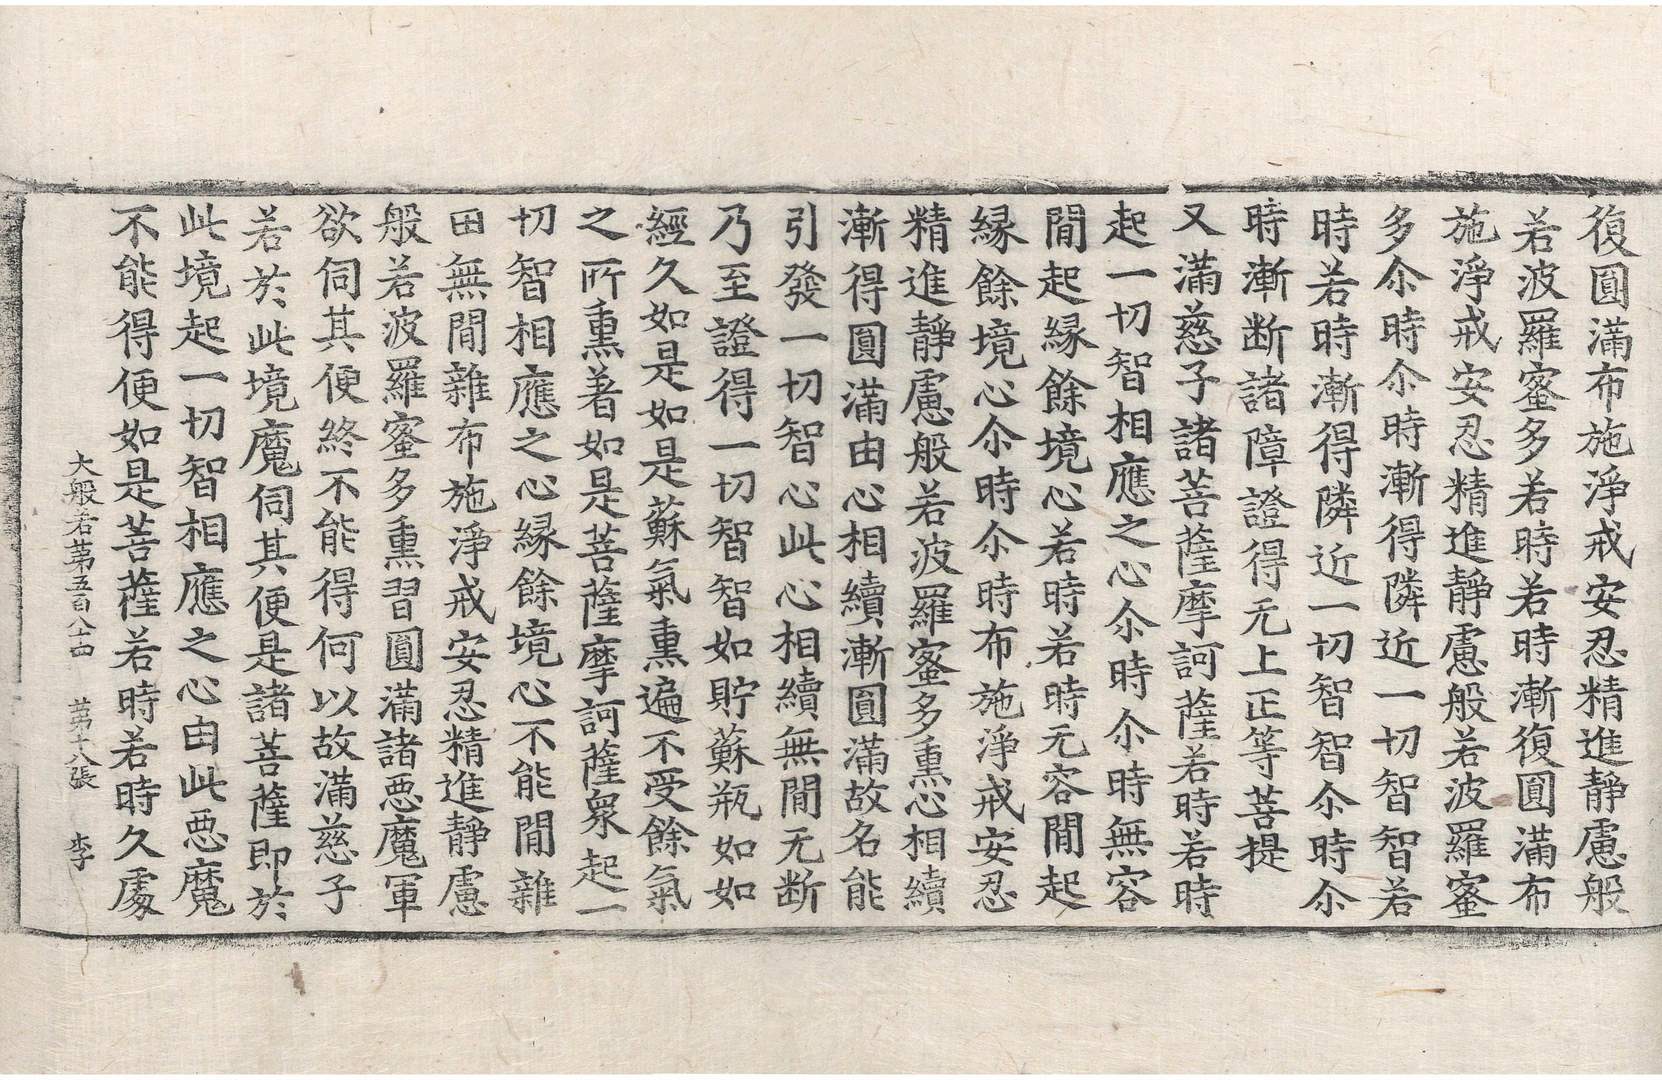 復圓滿布施淨戒安忍精進靜慮般
若波羅蜜多若時若時漸復圓滿布
施淨戒安忍精進靜慮般若波羅蜜
多尒時尒時漸得隣近一切智智若
時若時漸得隣近一切智智尒時尒
時漸断諸障證得无上正等菩提
又滿慈子諸菩薩摩訶薩若時若時
起一切智相應之心尒時尒時無容
閒起緣餘境心若時若時无容閒起
緣餘境心尒時尒時布施淨戒安忍
精進靜慮般若波羅蜜多熏心相續
漸得圓滿由心相續漸圓滿故名能
引發一切智心此心相續無閒无断
乃至證得一切智智如貯蘇瓶如如
經久如是如是蘇氣熏遍不受餘氣
之所熏著如是菩薩摩訶薩衆起一
切智相應之心緣餘境心不能閒雜
由無閒雜布施淨戒安忍精進靜慮
般若波羅蜜多熏習圓滿諸惡魔軍
欲伺其便終不能得何以故滿慈子
若於此境魔伺其便是諸菩薩即於
此境起一切智相應之心由此惡魔
不能得便如是菩薩若時若時久處
大般若第五百八十四 第十八張 李